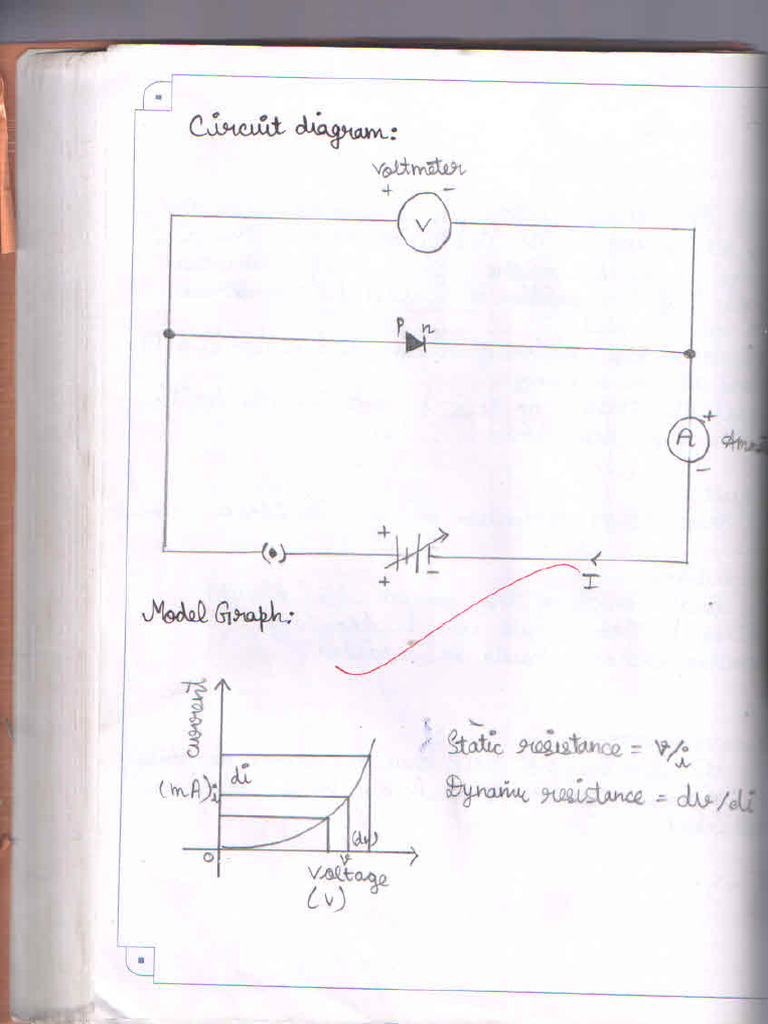 Circuit diagram:
Voltmeter
+ -
V
P n
+
A
-
+
(•)
+ -
I
Model Graph:
current
(mA)
di
i
Static resistance = v/i
Dynamic resistance = dv/di
(dv)
0
v
Voltage
(V)